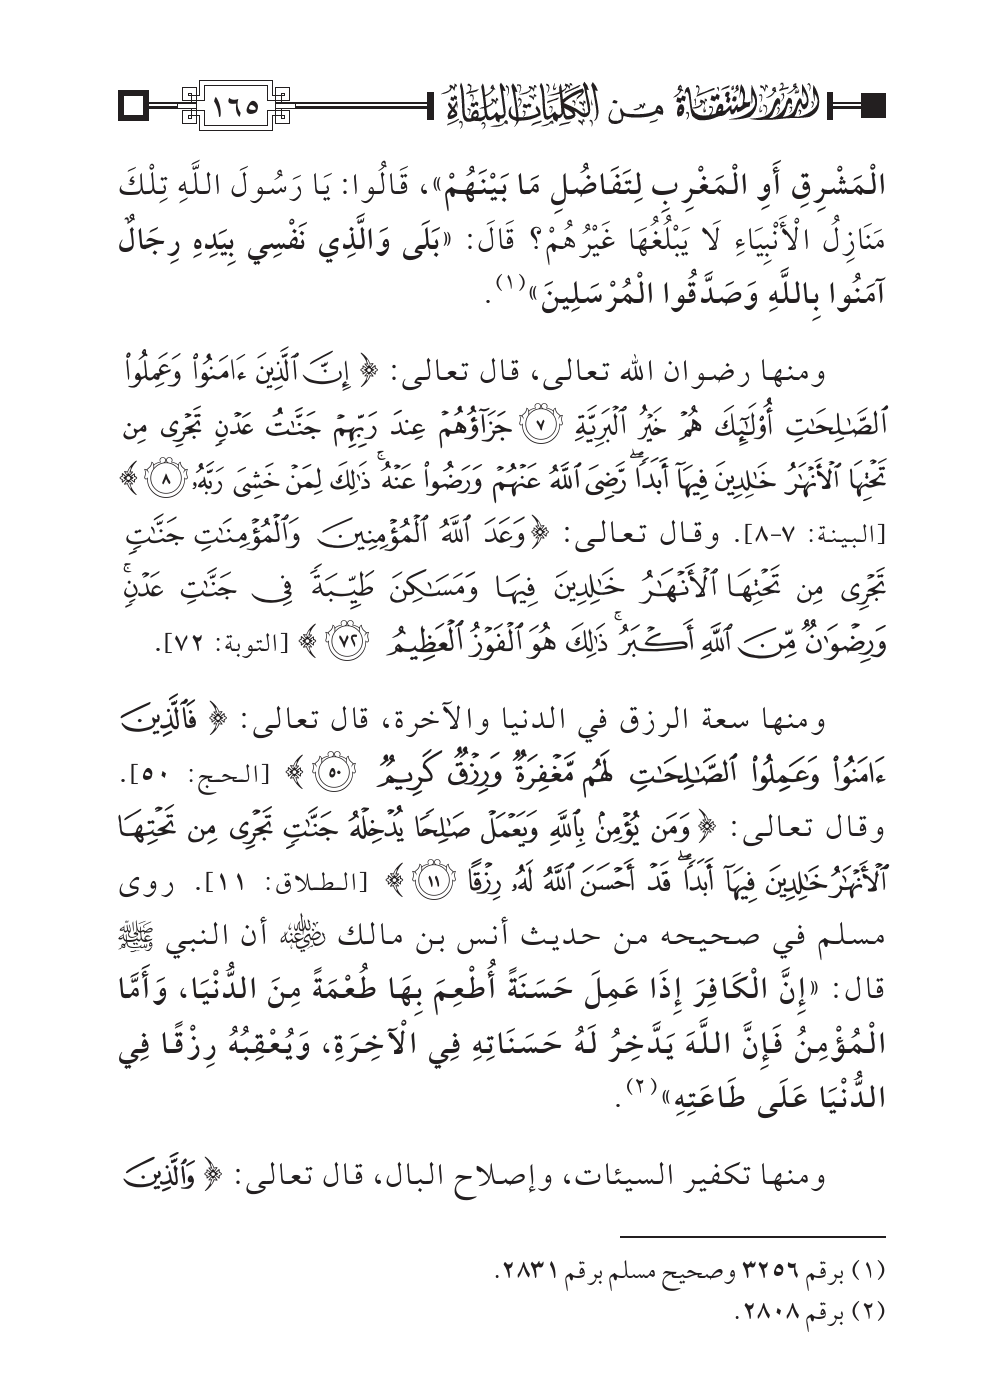 الدرر المنتقاة من الكلمات الملقاة ١٦٥
الْمَشْرِقِ أَوِ الْمَغْرِبِ لِتَفَاضُلِ مَا بَيْنَهُمْ»، قَالُوا: يَا رَسُولَ اللَّهِ تِلْكَ
مَنَازِلُ الْأَنْبِيَاءِ لَا يَبْلُغُهَا غَيْرُهُمْ؟ قَالَ: «بَلَى وَالَّذِي نَفْسِي بِيَدِهِ رِجَالٌ
آمَنُوا بِاللَّهِ وَصَدَّقُوا الْمُرْسَلِينَ»(١).
ومنها رضوان الله تعالى، قال تعالى: ﴿ إِنَّ ٱلَّذِينَ ءَامَنُوا۟ وَعَمِلُوا۟
ٱلصَّـٰلِحَـٰتِ أُو۟لَـٰٓئِكَ هُمْ خَيْرُ ٱلْبَرِيَّةِ ٧ جَزَآؤُهُمْ عِندَ رَبِّهِمْ جَنَّـٰتُ عَدْنٍ تَجْرِى مِن
تَحْتِهَا ٱلْأَنْهَـٰرُ خَـٰلِدِينَ فِيهَآ أَبَدًا ۖ رَّضِىَ ٱللَّهُ عَنْهُمْ وَرَضُوا۟ عَنْهُ ۚ ذَٰلِكَ لِمَنْ خَشِىَ رَبَّهُۥ ٨ ﴾
[البينة: ٧-٨]. وقال تعالى: ﴿ وَعَدَ ٱللَّهُ ٱلْمُؤْمِنِينَ وَٱلْمُؤْمِنَـٰتِ جَنَّـٰتٍ
تَجْرِى مِن تَحْتِهَا ٱلْأَنْهَـٰرُ خَـٰلِدِينَ فِيهَا وَمَسَـٰكِنَ طَيِّبَةً فِى جَنَّـٰتِ عَدْنٍ ۚ
وَرِضْوَٰنٌ مِّنَ ٱللَّهِ أَكْبَرُ ۚ ذَٰلِكَ هُوَ ٱلْفَوْزُ ٱلْعَظِيمُ ٧٢ ﴾ [التوبة: ٧٢].
ومنها سعة الرزق في الدنيا والآخرة، قال تعالى: ﴿ فَٱلَّذِينَ
ءَامَنُوا۟ وَعَمِلُوا۟ ٱلصَّـٰلِحَـٰتِ لَهُم مَّغْفِرَةٌ وَرِزْقٌ كَرِيمٌ ٥٠ ﴾ [الحج: ٥٠].
وقال تعالى: ﴿ وَمَن يُؤْمِنۢ بِٱللَّهِ وَيَعْمَلْ صَـٰلِحًا يُدْخِلْهُ جَنَّـٰتٍ تَجْرِى مِن تَحْتِهَا
ٱلْأَنْهَـٰرُ خَـٰلِدِينَ فِيهَآ أَبَدًا ۖ قَدْ أَحْسَنَ ٱللَّهُ لَهُۥ رِزْقًا ١١ ﴾ [الطلاق: ١١]. روى
مسلم في صحيحه من حديث أنس بن مالك رضي الله عنه أن النبي ﷺ
قال: «إِنَّ الْكَافِرَ إِذَا عَمِلَ حَسَنَةً أُطْعِمَ بِهَا طُعْمَةً مِنَ الدُّنْيَا، وَأَمَّا
الْمُؤْمِنُ فَإِنَّ اللَّهَ يَدَّخِرُ لَهُ حَسَنَاتِهِ فِي الْآخِرَةِ، وَيُعْقِبُهُ رِزْقًا فِي
الدُّنْيَا عَلَى طَاعَتِهِ»(٢).
ومنها تكفير السيئات، وإصلاح البال، قال تعالى: ﴿ وَٱلَّذِينَ
(١) برقم ٣٢٥٦ وصحيح مسلم برقم ٢٨٣١.
(٢) برقم ٢٨٠٨.